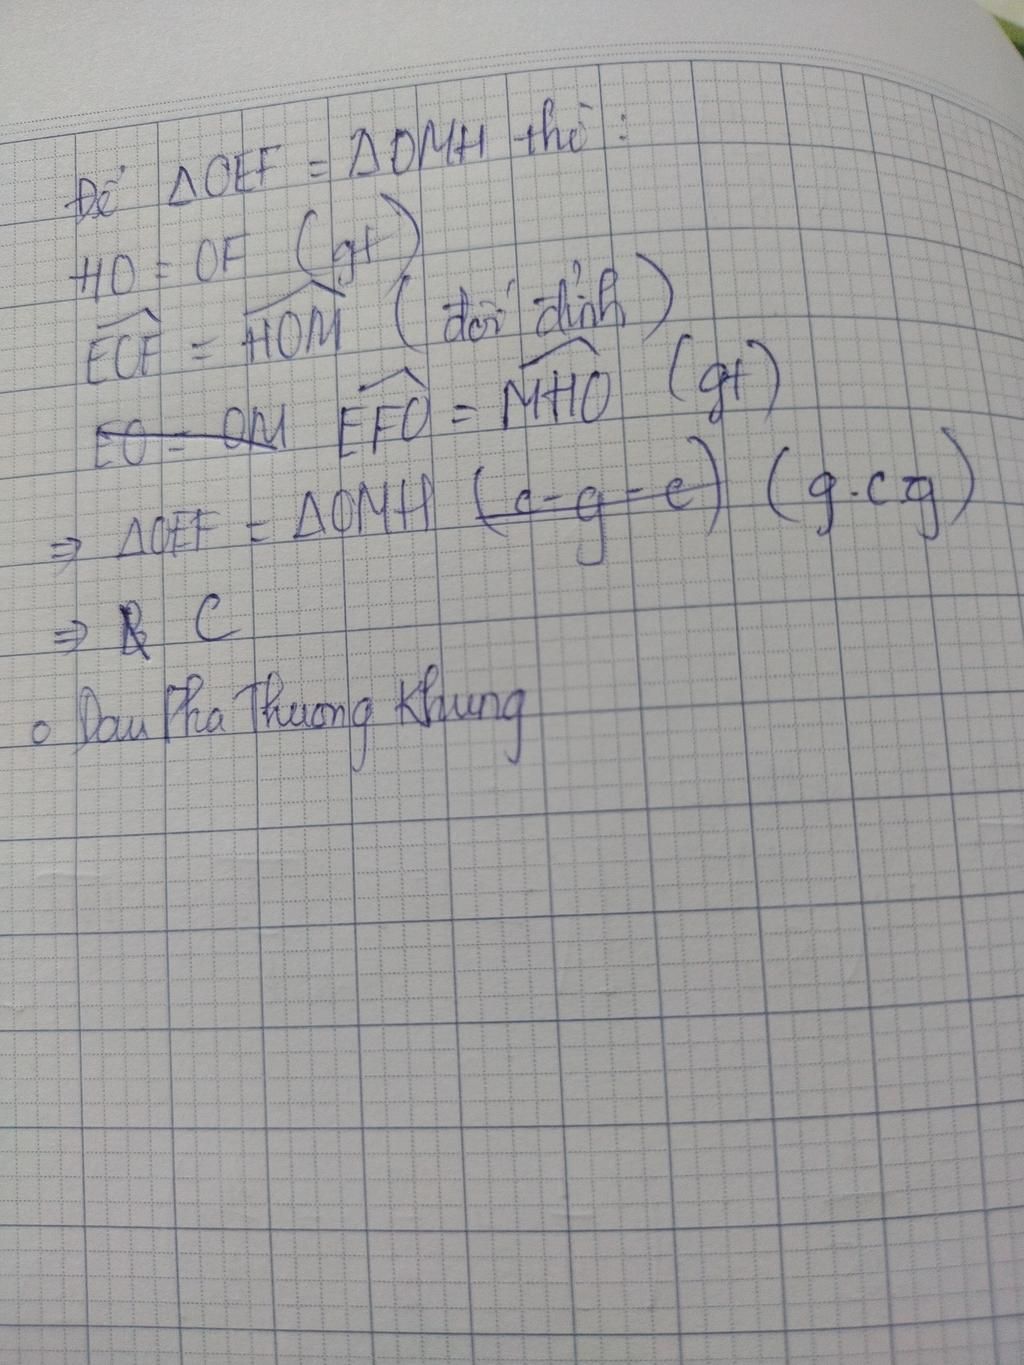 Để ΔOEF = ΔOMH thì :
HO = OF (gt)
EOF = HOM (đối đỉnh)
EO = OM EFO = MHO (gt)
⇒ ΔOEF = ΔOMH (c-g-c) (g.c.g)
⇒ C
Dau Pha Thuong Khung